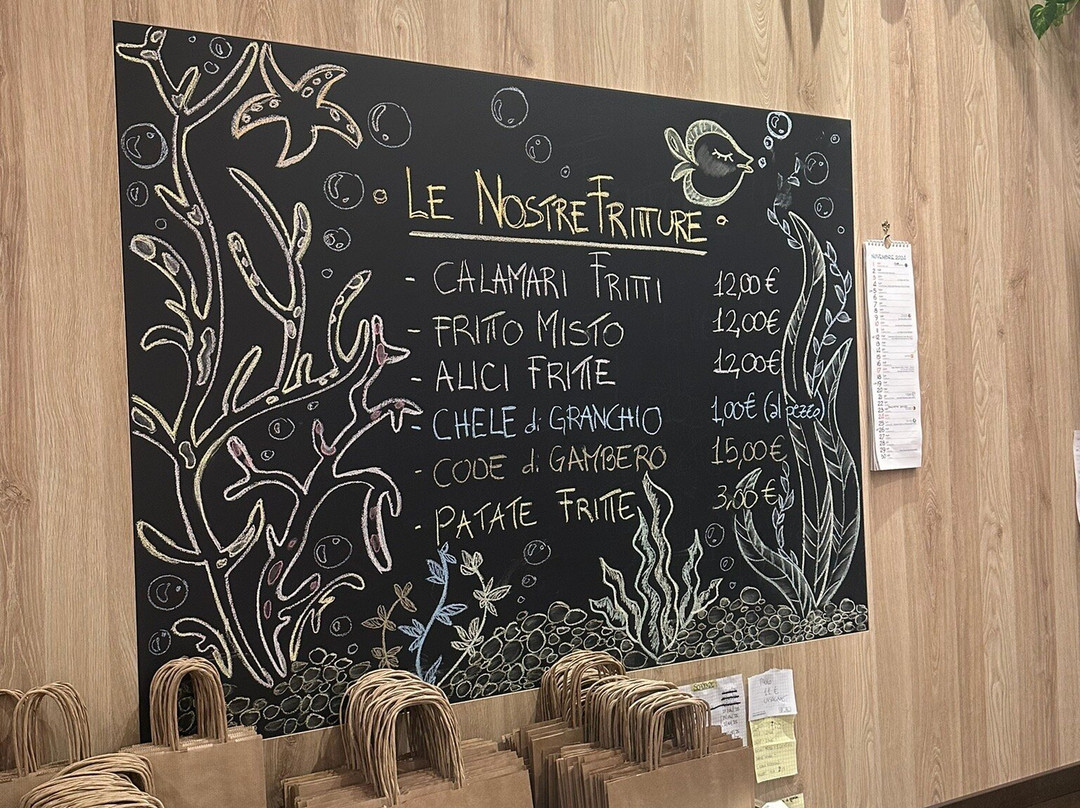 LE NOSTRE FRITTURE
- CALAMARI FRITTI 12,00 €
- FRITTO MISTO 12,00€
- ALICI FRITTE 12,00€
- CHELE di GRANCHIO 1,00€ (al pezzo)
- CODE di GAMBERO 15,00€
- PATATE FRITTE 3,00€
NOVEMBRE